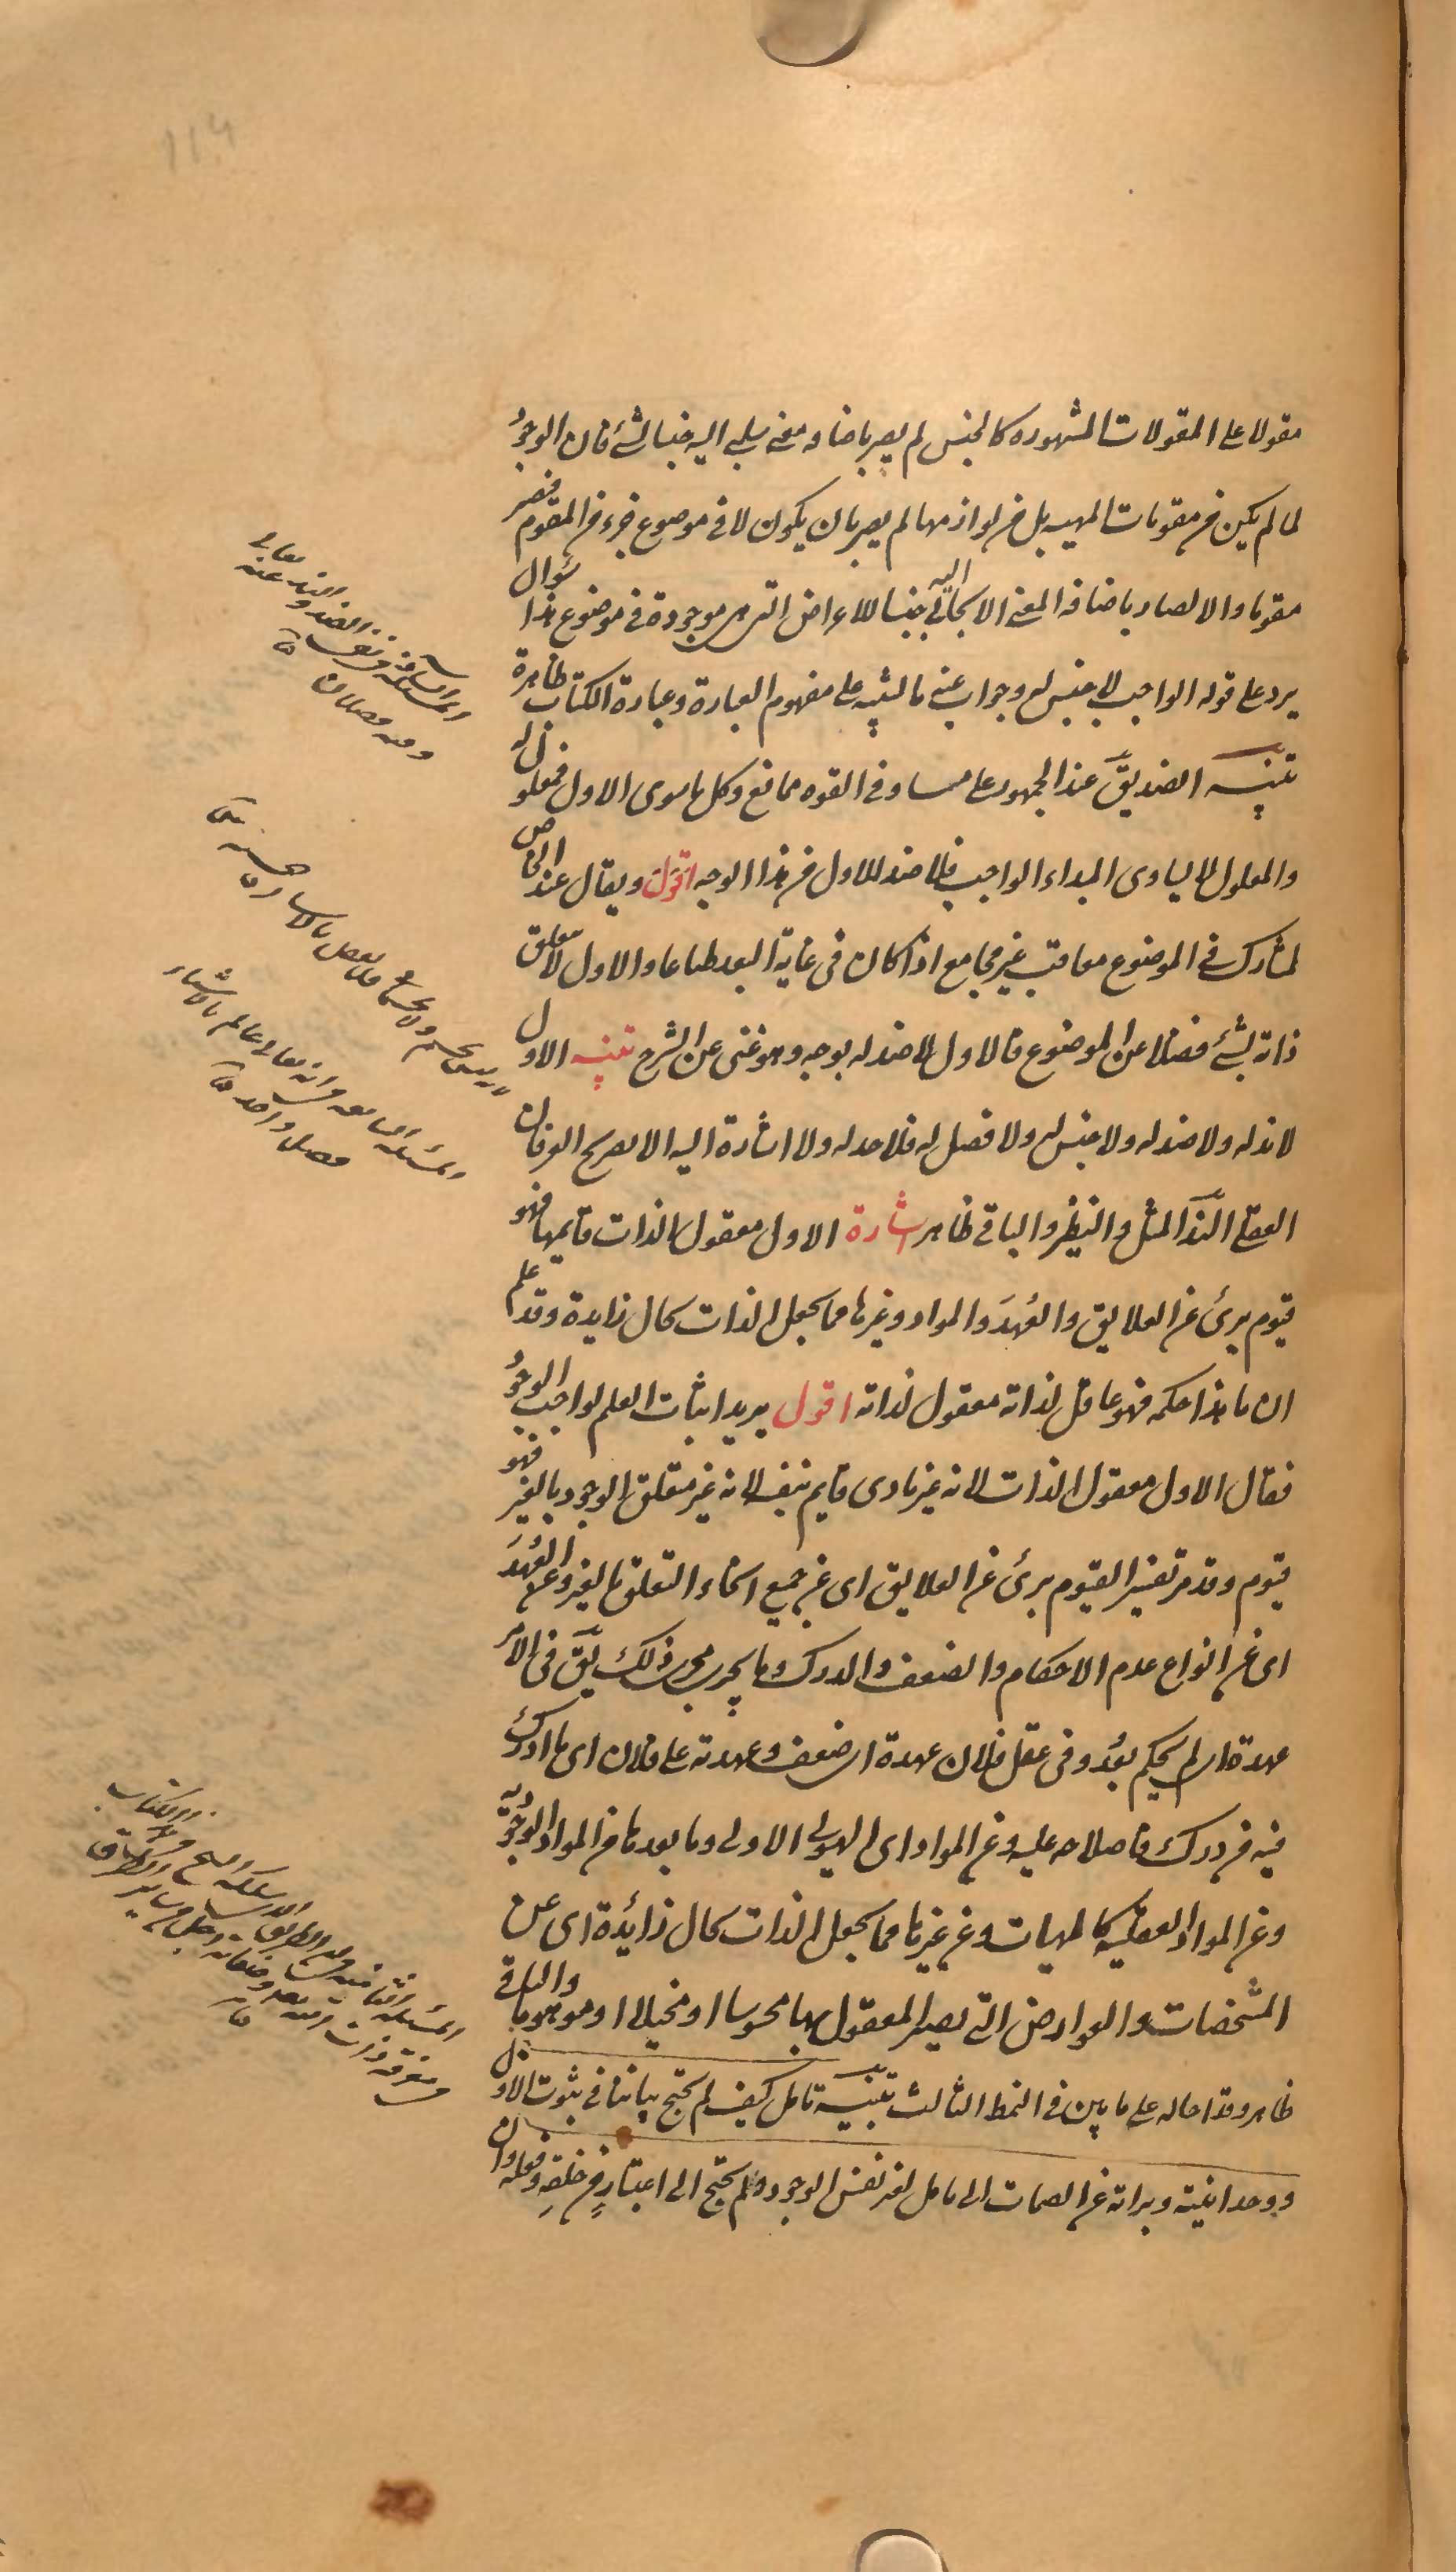 مقولا على المقولات المشهوره كالجنس لم يصر باضافه معنى سلبى اليه جنسا لشئ فان الوجود
لما لم يكن من مقومات المهيه بل من لوازمها لم يصر بان يكون لا فى موضوع جزء من المقوم فيصير
مقوما والا لصار باضافه المعنى الايجابى اليه جنسا للاعراض التى هى موجودة فى موضوع هذا سؤال
يرد على قوله الواجب لا جنس له وجواب عنه مالتنبيه على مفهوم العبارة وعبارة الكتاب ظاهرة
تنبيه الضد يق عند الجمهور على مساو فى القوه ممانع وكل ما سوى الاول فمعلول له
والمعلول لا يساوى المبداء الواجب فلا ضد للاول من هذا الوجه اقول ويقال عند الخاص
لمشارك فى الموضوع معاقب غير مجامع اذا كان فى غاية البعد طباعا والاول لا متعلق
ذاته بشئ فضلا عن الموضوع فالاول لا ضد له بوجه وهو غنى عن الشرح تنبيه الاول
لا ند له ولا ضد له ولا جنس له ولا فصل له فلا حد له ولا اشارة اليه الا بصريح العرفان
العقلى الند المثل والنظير والباقى ظاهر اشارة الاول معقول الذات قايمها فهو
قيوم برئ عن العلايق والعهد والمواد وغيرها مما يجعل الذات بحال زايدة وقد علم
ان ما هذا حكمه فهو عاقل لذاته معقول لذاته اقول يريد اثبات العلم لواجب الوجود
فقال الاول معقول الذات لانه غير مادى قايم بنفسه لانه غير متعلق الوجود بالغير فهو
قيوم وقد مر تفسير القيوم برئ عن العلايق اى عن جميع انحاء التعلق بالغير وعن العهد
اى عن انواع عدم الاحكام والضعف والدرك وما يجرى مجرى ذلك يق فى الامر
عهدة اى لم يحكم بعد وفى عقل فلان عهدة اى ضعف وعهدته على فلان اى ما ادرك
فيه من درك فاصلاحه عليه وعن المواد اى الهيولى الاولى وما بعدها من المواد الوجودية
وعن المواد العقليه كالمهيات وعن غيرها مما يجعل الذات بحال زائدة اى عن
المشخصات والعوارض التى يصير المعقول بها محسوسا او مخيلا او موهوما والباقى
ظاهر وقد احاله على ما بين فى النمط الثالث تنبيه تامل كيف لم يحتج بياننا فى ثبوت الاول
ووحدانيته وبراته عن الصمات الى تامل لغير نفس الوجود ولم يحتج الى اعتبار من خلقه وفعله وان